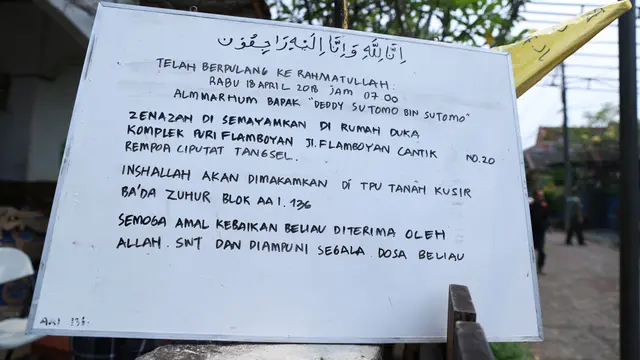 إنا لله وإنا إليه راجعون
TELAH BERPULANG KE RAHMATULLAH:
RABU 18 APRIL 2018 JAM 07.00
ALMMARHUM BAPAK "DEDDY SUTOMO BIN SUTOMO"
ZENAZAH DI SEMAYAMKAN DI RUMAH DUKA
KOMPLEK PURI FLAMBOYAN Jl. FLAMBOYAN CANTIK NO.20
REMPOA CIPUTAT TANGSEL.
INSHALLAH AKAN DIMAKAMKAN DI TPU TANAH KUSIR
BA'DA ZUHUR BLOK AA I. 136
SEMOGA AMAL KEBAIKAN BELIAU DITERIMA OLEH
ALLAH. SWT DAN DIAMPUNI SEGALA DOSA BELIAU